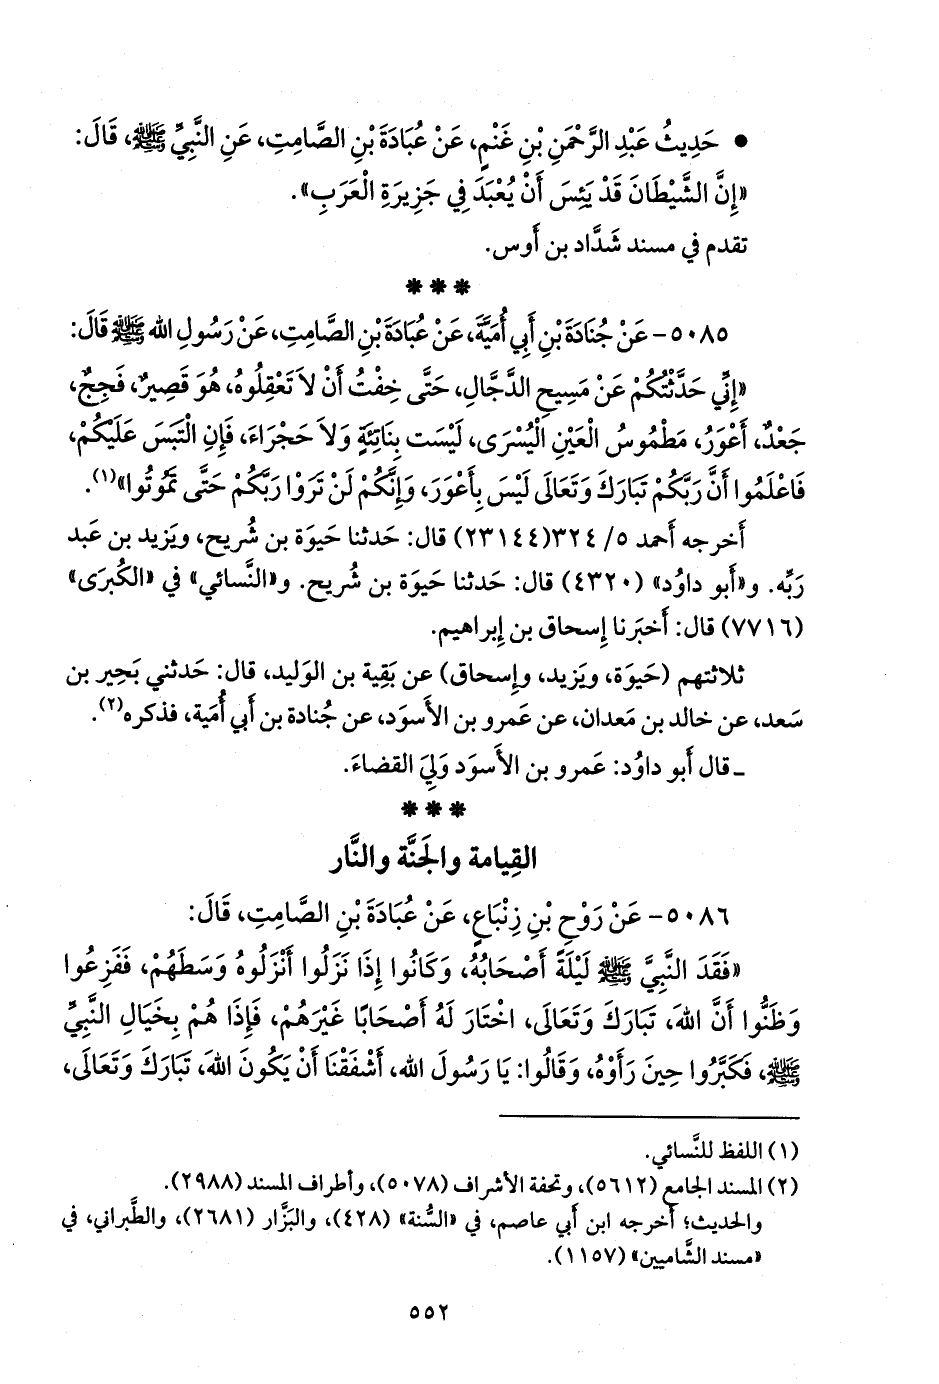 • حَدِيثُ عَبْدِ الرَّحْمَنِ بْنِ غَنْمٍ، عَنْ عُبَادَةَ بْنِ الصَّامِتِ، عَنِ النَّبِيِّ ﷺ، قَالَ:
«إِنَّ الشَّيْطَانَ قَدْ يَئِسَ أَنْ يُعْبَدَ فِي جَزِيرَةِ الْعَرَبِ».
تقدم في مسند شَدَّاد بن أَوس.
***
٥٠٨٥- عَنْ جُنَادَةَ بْنِ أَبِي أُمَيَّةَ، عَنْ عُبَادَةَ بْنِ الصَّامِتِ، عَنْ رَسُولِ الله ﷺ قَالَ:
«إِنِّي حَدَّثْتُكُمْ عَنْ مَسِيحِ الدَّجَّالِ، حَتَّى خِفْتُ أَنْ لاَ تَعْقِلُوهُ، هُوَ قَصِيرٌ، فَحِجٌ،
جَعْدٌ، أَعْوَرُ، مَطْمُوسُ الْعَيْنِ الْيُسْرَى، لَيْسَت بِنَاتِئَةٍ وَلاَ حَجْرَاءَ، فَإِنِ الْتَبَسَ عَلَيْكُمْ،
فَاعْلَمُوا أَنَّ رَبَّكُمْ تَبَارَكَ وَتَعَالَى لَيْسَ بِأَعْوَرَ، وَإِنَّكُمْ لَنْ تَرَوْا رَبَّكُمْ حَتَّى تَمُوتُوا»(١).
أَخرجه أَحمد ٥/ ٣٢٤(٢٣١٤٤) قال: حَدثنا حَيوَة بن شُريح، ويَزيد بن عَبد
رَبِّه. و«أَبو داوُد» (٤٣٢٠) قال: حَدثنا حَيوَة بن شُريح. و«النَّسائي» في «الكُبرَى»
(٧٧١٦) قال: أَخبَرنا إِسحاق بن إِبراهيم.
ثلاثتهم (حَيوَة، ويَزيد، وإِسحاق) عن بَقِية بن الوَليد، قال: حَدثني بَحِير بن
سَعد، عن خالد بن مَعدان، عن عَمرو بن الأَسوَد، عن جُنادة بن أَبي أُمَية، فذكره(٢).
ـ قال أَبو داوُد: عَمرو بن الأَسوَد وَلِيَ القضاءَ.
***
القِيامة والجَنَّة والنَّار
٥٠٨٦- عَنْ رَوْحِ بْنِ زِنْبَاعٍ، عَنْ عُبَادَةَ بْنِ الصَّامِتِ، قَالَ:
«فَقَدَ النَّبِيَّ ﷺ لَيْلَةً أَصْحَابُهُ، وَكَانُوا إِذَا نَزَلُوا أَنْزَلُوهُ وَسَطَهُمْ، فَفَزِعُوا
وَظَنُّوا أَنَّ اللهَ، تَبَارَكَ وَتَعَالَى، اخْتَارَ لَهُ أَصْحَابًا غَيْرَهُمْ، فَإِذَا هُمْ بِخَيَالِ النَّبِيِّ
ﷺ، فَكَبَّرُوا حِينَ رَأَوْهُ، وَقَالُوا: يَا رَسُولَ الله، أَشْفَقْنَا أَنْ يَكُونَ اللهُ، تَبَارَكَ وَتَعَالَى،
(١) اللفظ للنَّسائي.
(٢) المسند الجامع (٥٦١٢)، وتحفة الأشراف (٥٠٧٨)، وأطراف المسند (٢٩٨٨).
والحديث؛ أخرجه ابن أبي عاصم، في «السُّنة» (٤٢٨)، والبَزَّار (٢٦٨١)، والطَّبراني، في
«مسند الشَّاميين» (١١٥٧).
٥٥٢